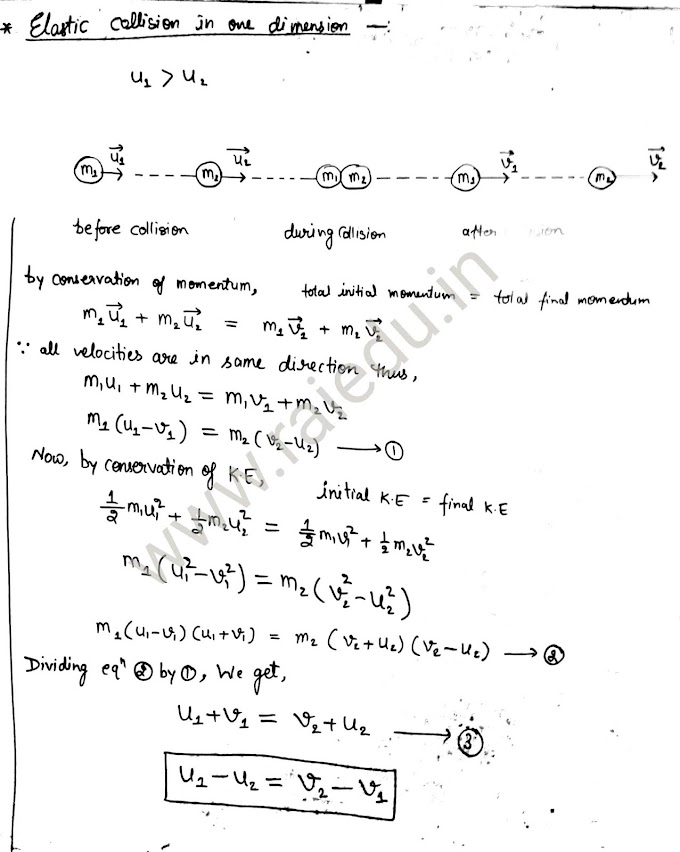 * Elastic collision in one dimension —:
u₁ > u₂
m₁ u₁⃗ m₂ u₂⃗ m₁ m₂ m₁ v₁⃗ m₂ v₂⃗
before collision during collision after
by conservation of momentum, total initial momentum = total final momentum
m₁u₁⃗ + m₂u₂⃗ = m₁v₁⃗ + m₂v₂⃗
∵ all velocities are in same direction thus,
m₁u₁ + m₂u₂ = m₁v₁ + m₂v₂
m₁(u₁–v₁) = m₂(v₂–u₂) ⟶ ①
Now, by conservation of K.E, initial K.E = final K.E
½m₁u₁² + ½m₂u₂² = ½m₁v₁² + ½m₂v₂²
m₁(u₁²–v₁²) = m₂(v₂²–u₂²)
m₁(u₁–v₁)(u₁+v₁) = m₂(v₂+u₂)(v₂–u₂) ⟶ ②
Dividing eqⁿ ② by ①, We get,
u₁+v₁ = v₂+u₂ ⟶ ③
u₁–u₂ = v₂–v₁
www.raiedu.in